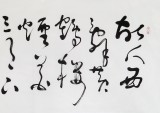 故人西
辭黃
鶴樓
煙花
三月下